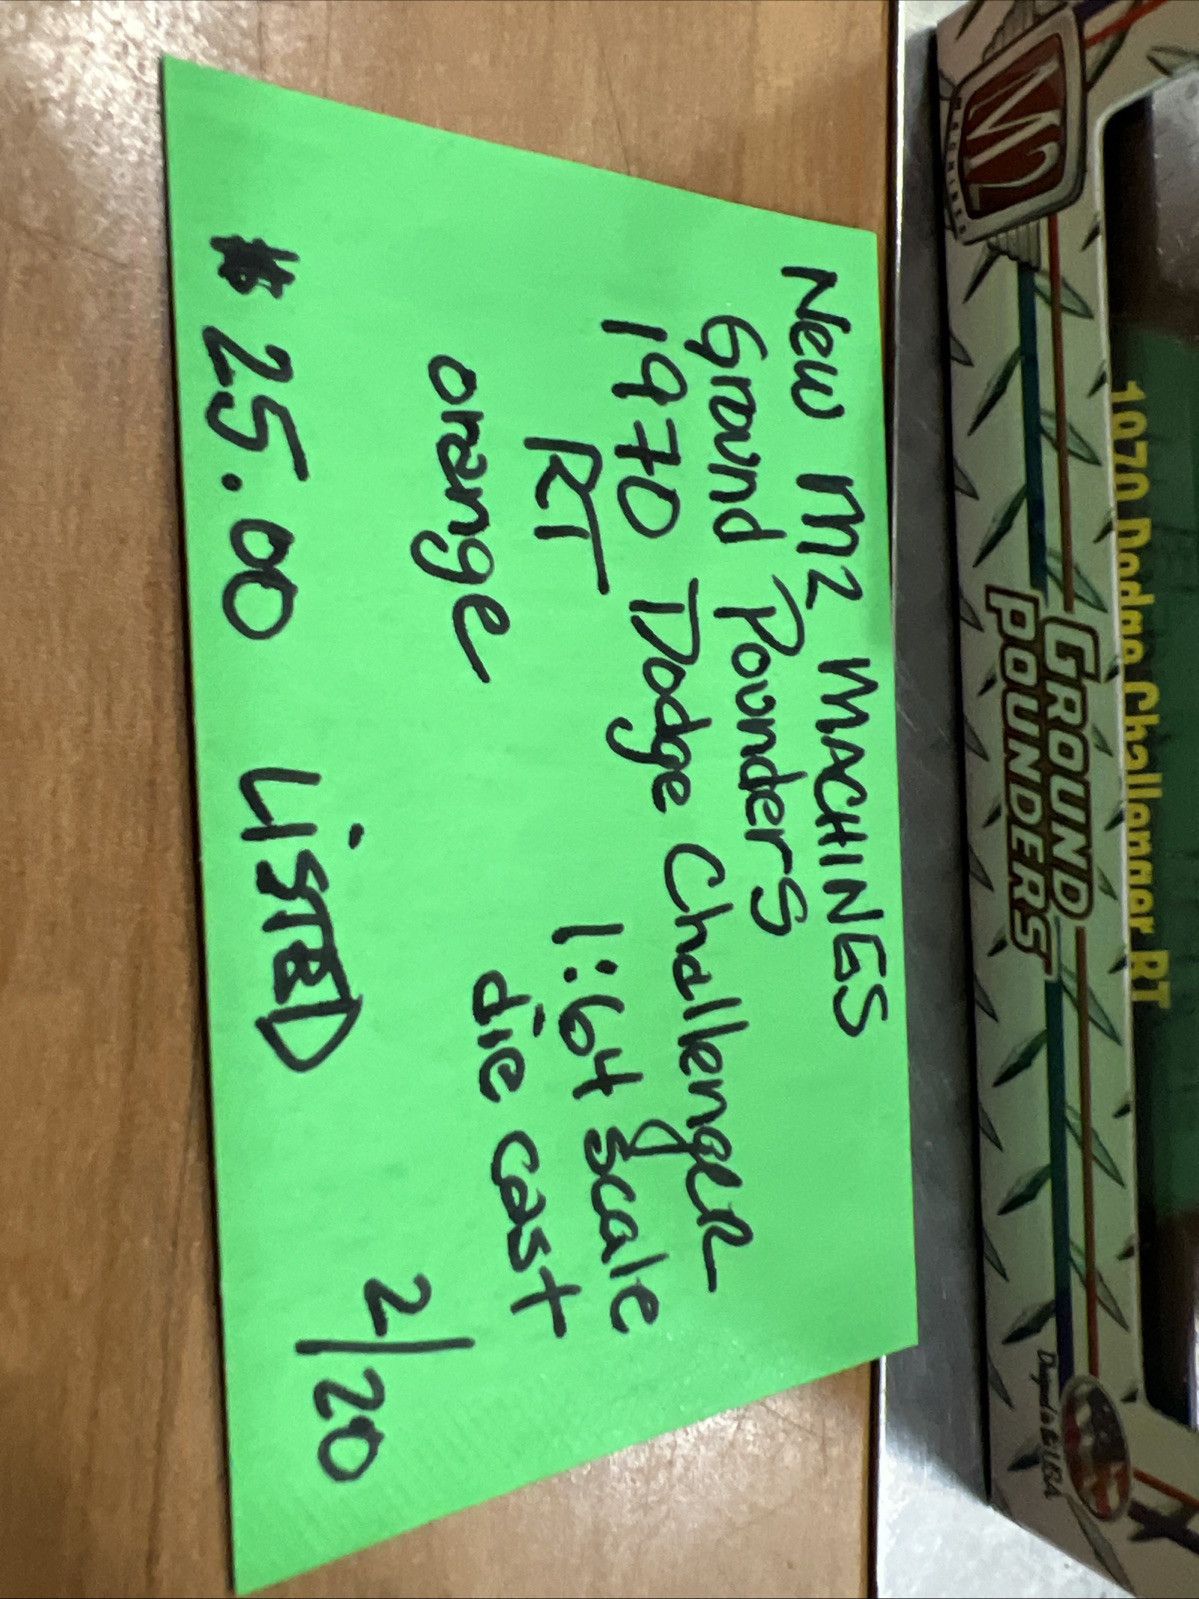 New M2 MACHINES
Ground Pounders
1970 Dodge Challenger
RT 1:64 scale
orange die cast
2/20
$25.00 LISTED
M2
MACHINES
GROUND
POUNDERS
1970 Dodge Challenger RT